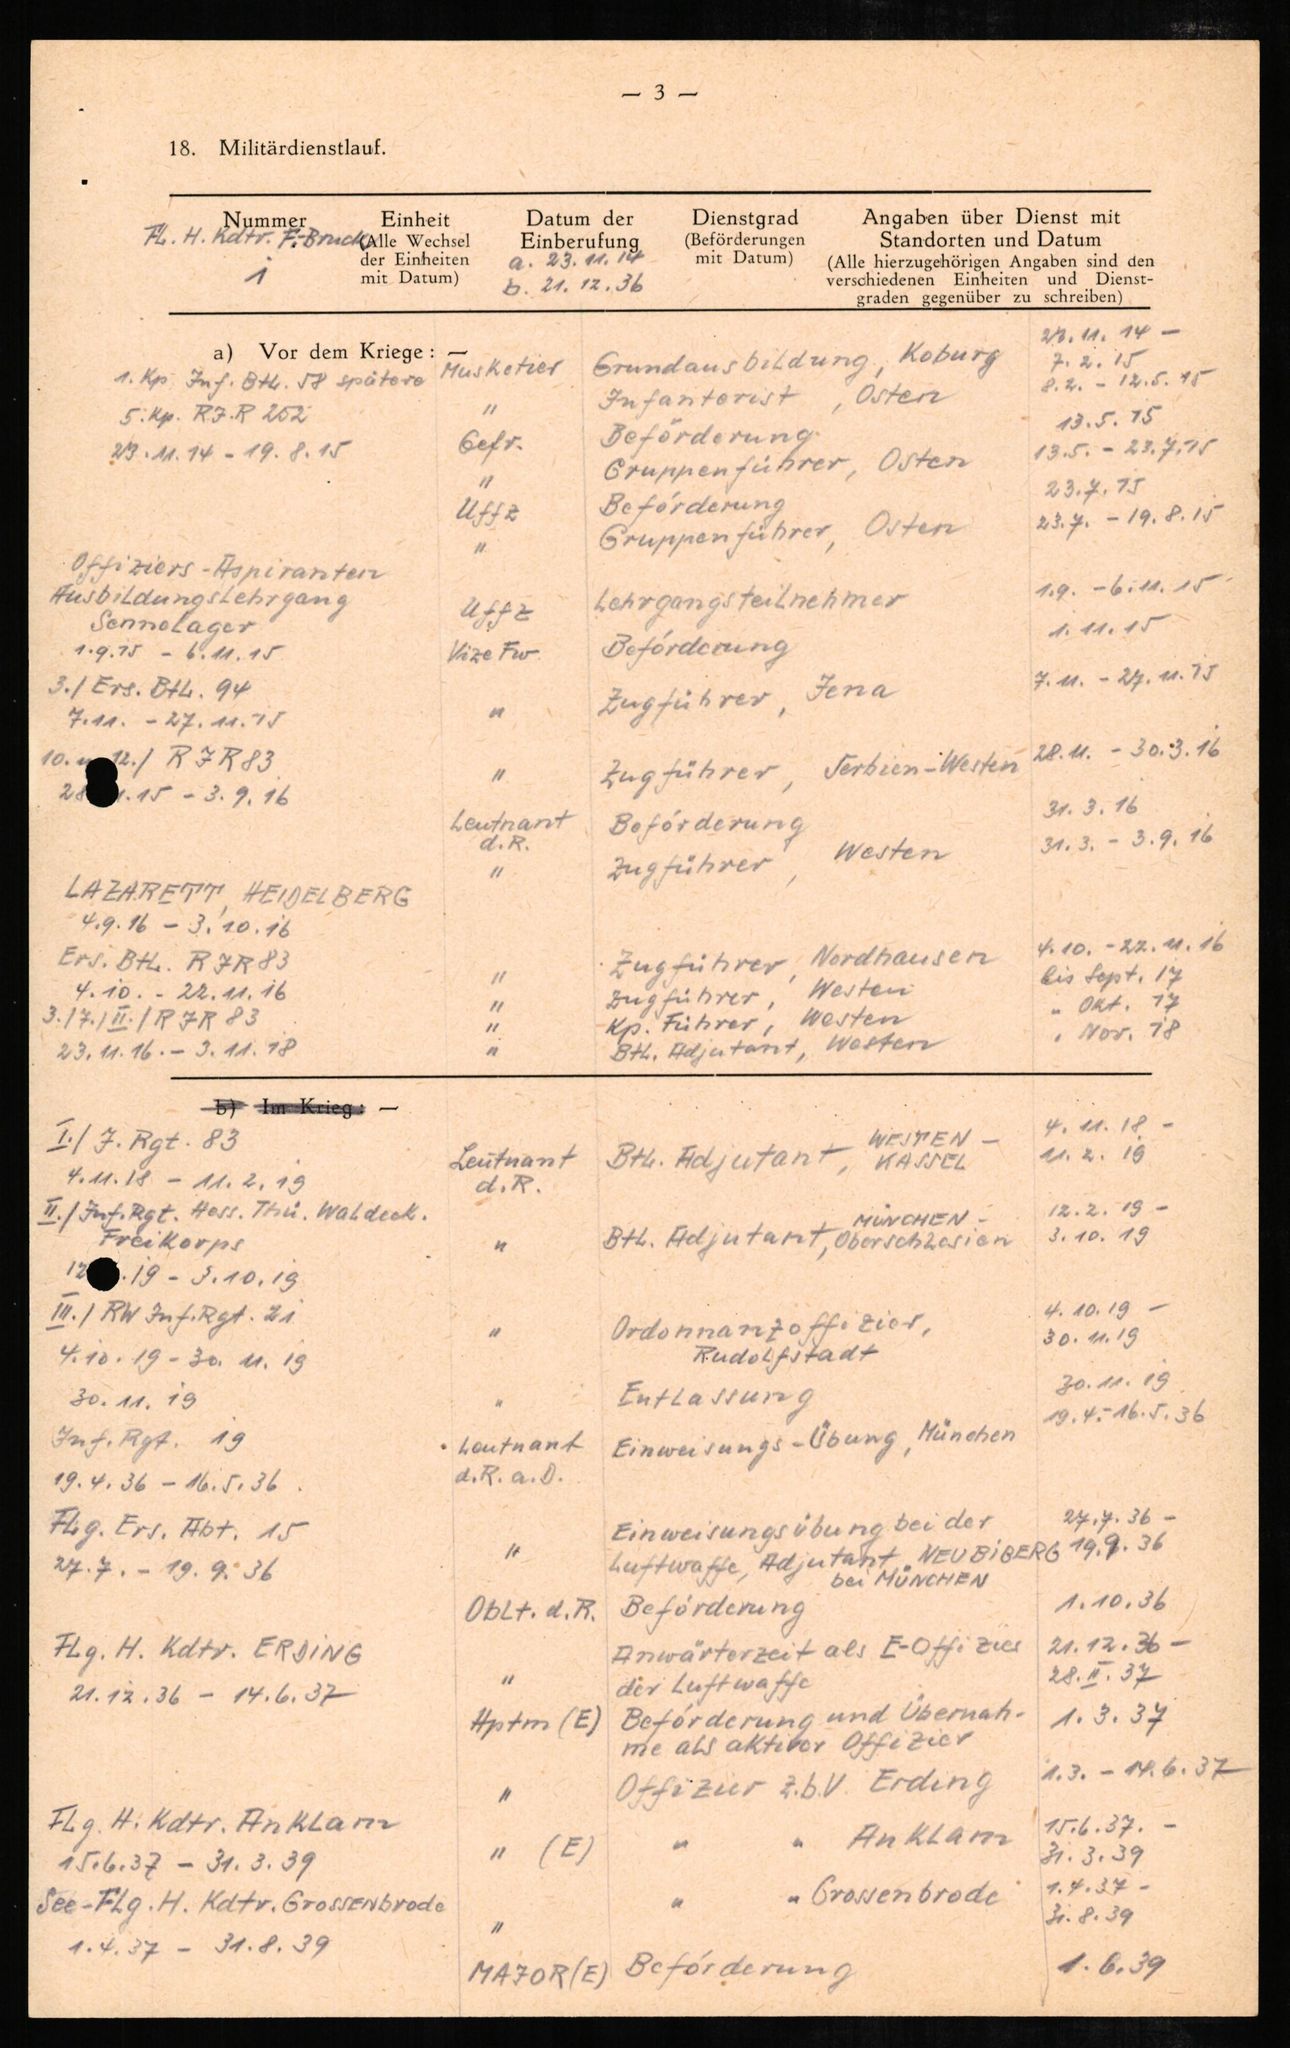 — 3 —
18. Militärdienstlauf.
Nummer
Fl. H. Kdtr. F.-Bruck
i
Einheit
(Alle Wechsel
der Einheiten
mit Datum)
Datum der
Einberufung
a. 23.11.14
b. 21.12.36
Dienstgrad
(Beförderungen
mit Datum)
Angaben über Dienst mit
Standorten und Datum
(Alle hierzugehörigen Angaben sind den
verschiedenen Einheiten und Dienst-
graden gegenüber zu schreiben)
a) Vor dem Kriege: —
23.11.14 —
1. Kp. Inf. Btl. 58 spätere Musketier Grundausbildung, Koburg 7.2.15
5. Kp. RJR 252 " Infanterist, Osten 8.2. - 12.5.15
23.11.14 - 19.8.15 Gefr. Beförderung 13.5.15
" Gruppenführer, Osten 13.5. - 23.7.15
Uffz Beförderung 23.7.15
" Gruppenführer, Osten 23.7. - 19.8.15
Offiziers-Aspiranten
Ausbildungslehrgang Uffz Lehrgangsteilnehmer 1.9. - 6.11.15
Sennelager
1.9.15 - 6.11.15 Vize Fw. Beförderung 1.11.15
3./ Ers. Btl. 94 " Zugführer, Jena 7.11. - 27.11.15
7.11. - 27.11.15
10. u. 12./ RJR 83 " Zugführer, Serbien-Westen 28.11. - 30.3.16
28 .15 - 3.9.16
Leutnant Beförderung 31.3.16
d.R.
" Zugführer, Westen 31.3. - 3.9.16
LAZARETT, HEIDELBERG
4.9.16 - 3.10.16
Ers. Btl. RJR 83 " Zugführer, Nordhausen 4.10. - 22.11.16
4.10. - 22.11.16 " Zugführer, Westen bis Sept. 17
3./7./II./RJR 83 " Kp. Führer, Westen " Okt. 17
23.11.16. - 3.11.18 " Btl. Adjutant, Westen " Nov. 18
b) Im Krieg: —
I./ J. Rgt. 83 Leutnant Btl. Adjutant, WESTEN - 4.11.18 -
4.11.18 - 11.2.19 d.R. KASSEL 11.2.19
II./ Inf. Rgt. Hess. Thü. Waldeck. MÜNCHEN - 12.2.19 -
Freikorps " Btl. Adjutant, Oberschlesien 3.10.19
12 .19 - 3.10.19
III./ RW Inf. Rgt. 21 " Ordonnanzoffizier, 4.10.19 -
4.10.19 - 30.11.19 Rudolfstadt 30.11.19
30.11.19 " Entlassung 30.11.19
Inf. Rgt. 19 Leutnant Einweisungs-Übung, München 19.4.-16.5.36
19.4.36 - 16.5.36. d.R.a.D.
Flg. Ers. Abt. 15 Einweisungsübung bei der 27.7.36 -
27.7. - 19.9.36 " Luftwaffe, Adjutant, NEUBIBERG 19.9.36
bei MÜNCHEN
Oblt. d.R. Beförderung 1.10.36
Flg. H. Kdtr. ERDING Anwärterzeit als E-Offizier 21.12.36 -
21.12.36 - 14.6.37 " der Luftwaffe 28.II.37
Hptm (E) Beförderung und Übernah- 1.3.37
me als aktiver Offizier
" Offizier z.b.V. Erding 1.3. - 14.6.37
Flg. H. Kdtr. Anklam " (E) " " Anklam 15.6.37. -
15.6.37 - 31.3.39 31.3.39
See-Flg. H. Kdtr. Grossenbrode " " " Grossenbrode 1.4.37 -
1.4.37 - 31.8.39 31.8.39
MAJOR (E) Beförderung 1.6.39